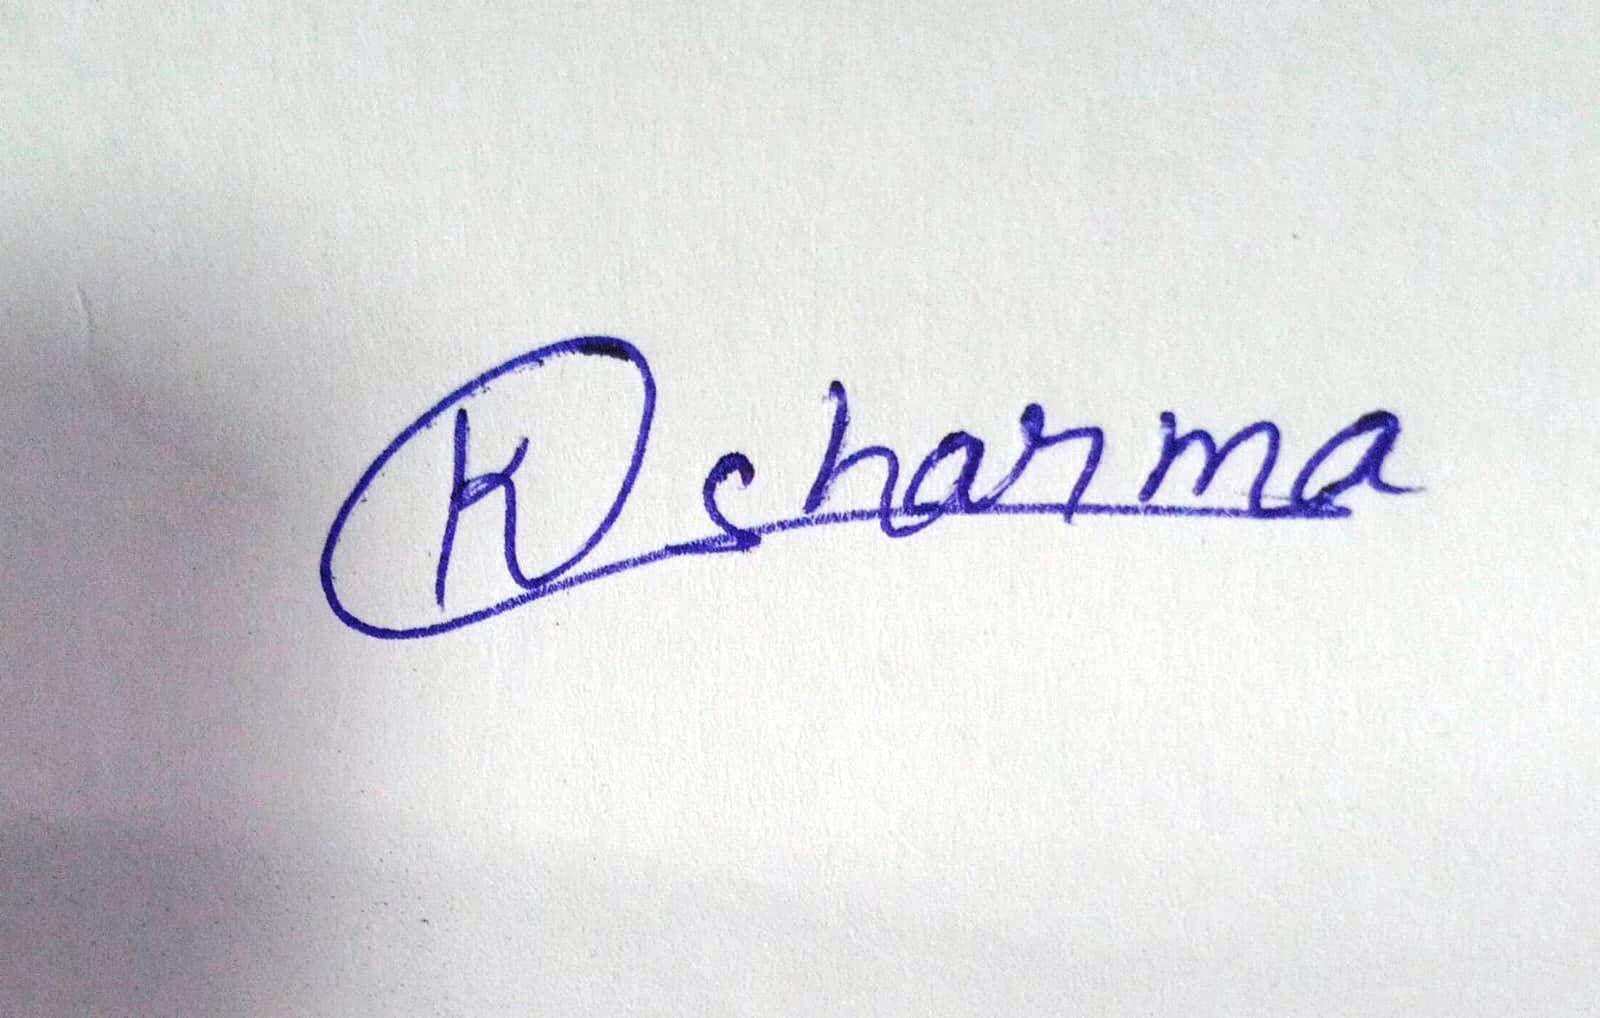 K sharma